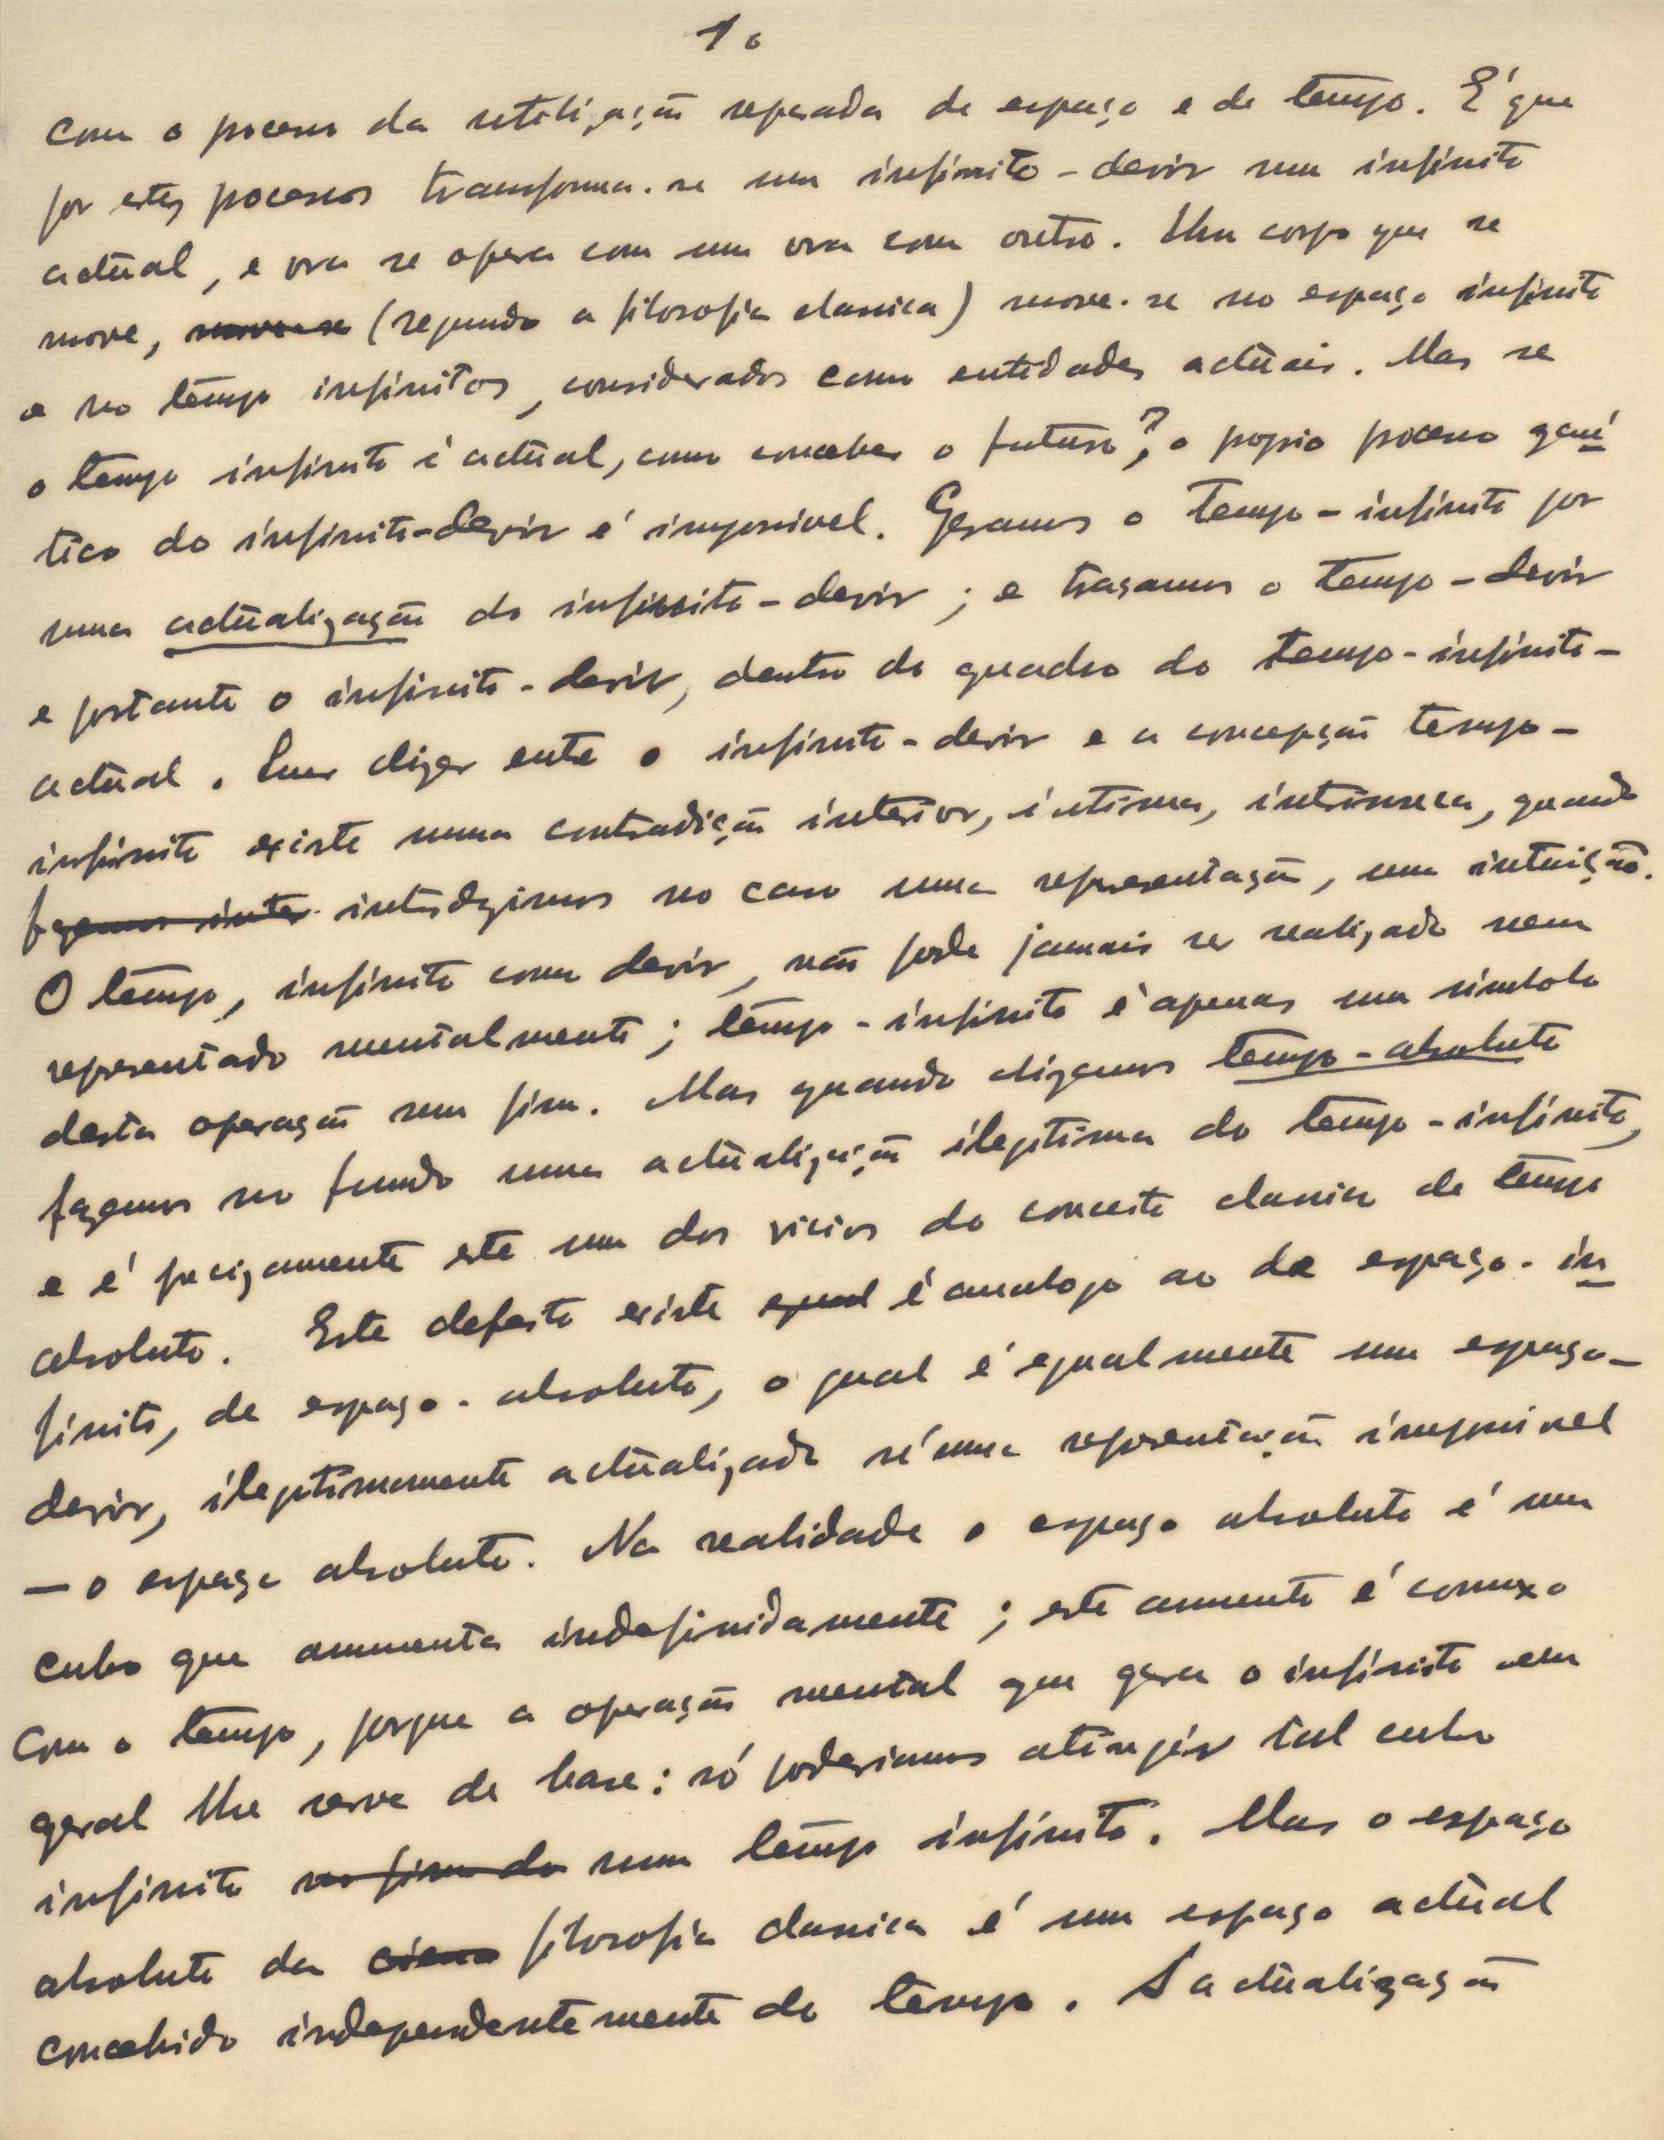 10
com o processo da utilização separada de espaço e de tempo. É que
por estes processos transforma-se um infinito-devir num infinito
actual, e ora se opera com um ora com outro. Um corpo que se
move, move-se (segundo a filosofia classica) move-se no espaço infinito
e no tempo infinitos, considerados como entidades actuais. Mas se
o tempo infinito é actual, como conceber o futuro?, o proprio processo gené
tico do infinito-devir é impossivel. Geramos o Tempo-infinito por
uma actualização do infinito-devir; e traçamos o tempo-devir
e portanto o infinito-devir, dentro do quadro do tempo-infinito-
actual. Quer dizer entre o infinito-devir e a concepção tempo-
infinito existe uma contradição interior, intima, intrinseca, quando
fazemos inter introduzimos no caso uma representação, uma intuição.
O tempo, infinito como devir, não pode jamais ser realizado nem
representado mentalmente; tempo-infinito é apenas um simbolo
desta operação sem fim. Mas quando dizemos tempo-absoluto
fazemos no fundo uma actualização ilegitima do tempo-infinito,
e é precizamente este um dos vicios do conceito classico de tempo
absoluto. Este defeito existe egual é analogo ao de espaço-in
finito, de espaço-absoluto, o qual é egualmente um espaço-
devir, ilegitimamente actualizado n'uma representação impossivel
— o espaço absoluto. Na realidade o espaço absoluto é um
cubo que aumenta indefinidamente; este aumento é connexo
com o tempo, porque a operação mental que gera o infinito em
geral lhe serve de base: só poderiamos atingir tal cubo
infinito no fim do num tempo infinito. Mas o espaço
absoluto da ciencia filosofia classica é um espaço actual
concebido independentemente do tempo. A actualização